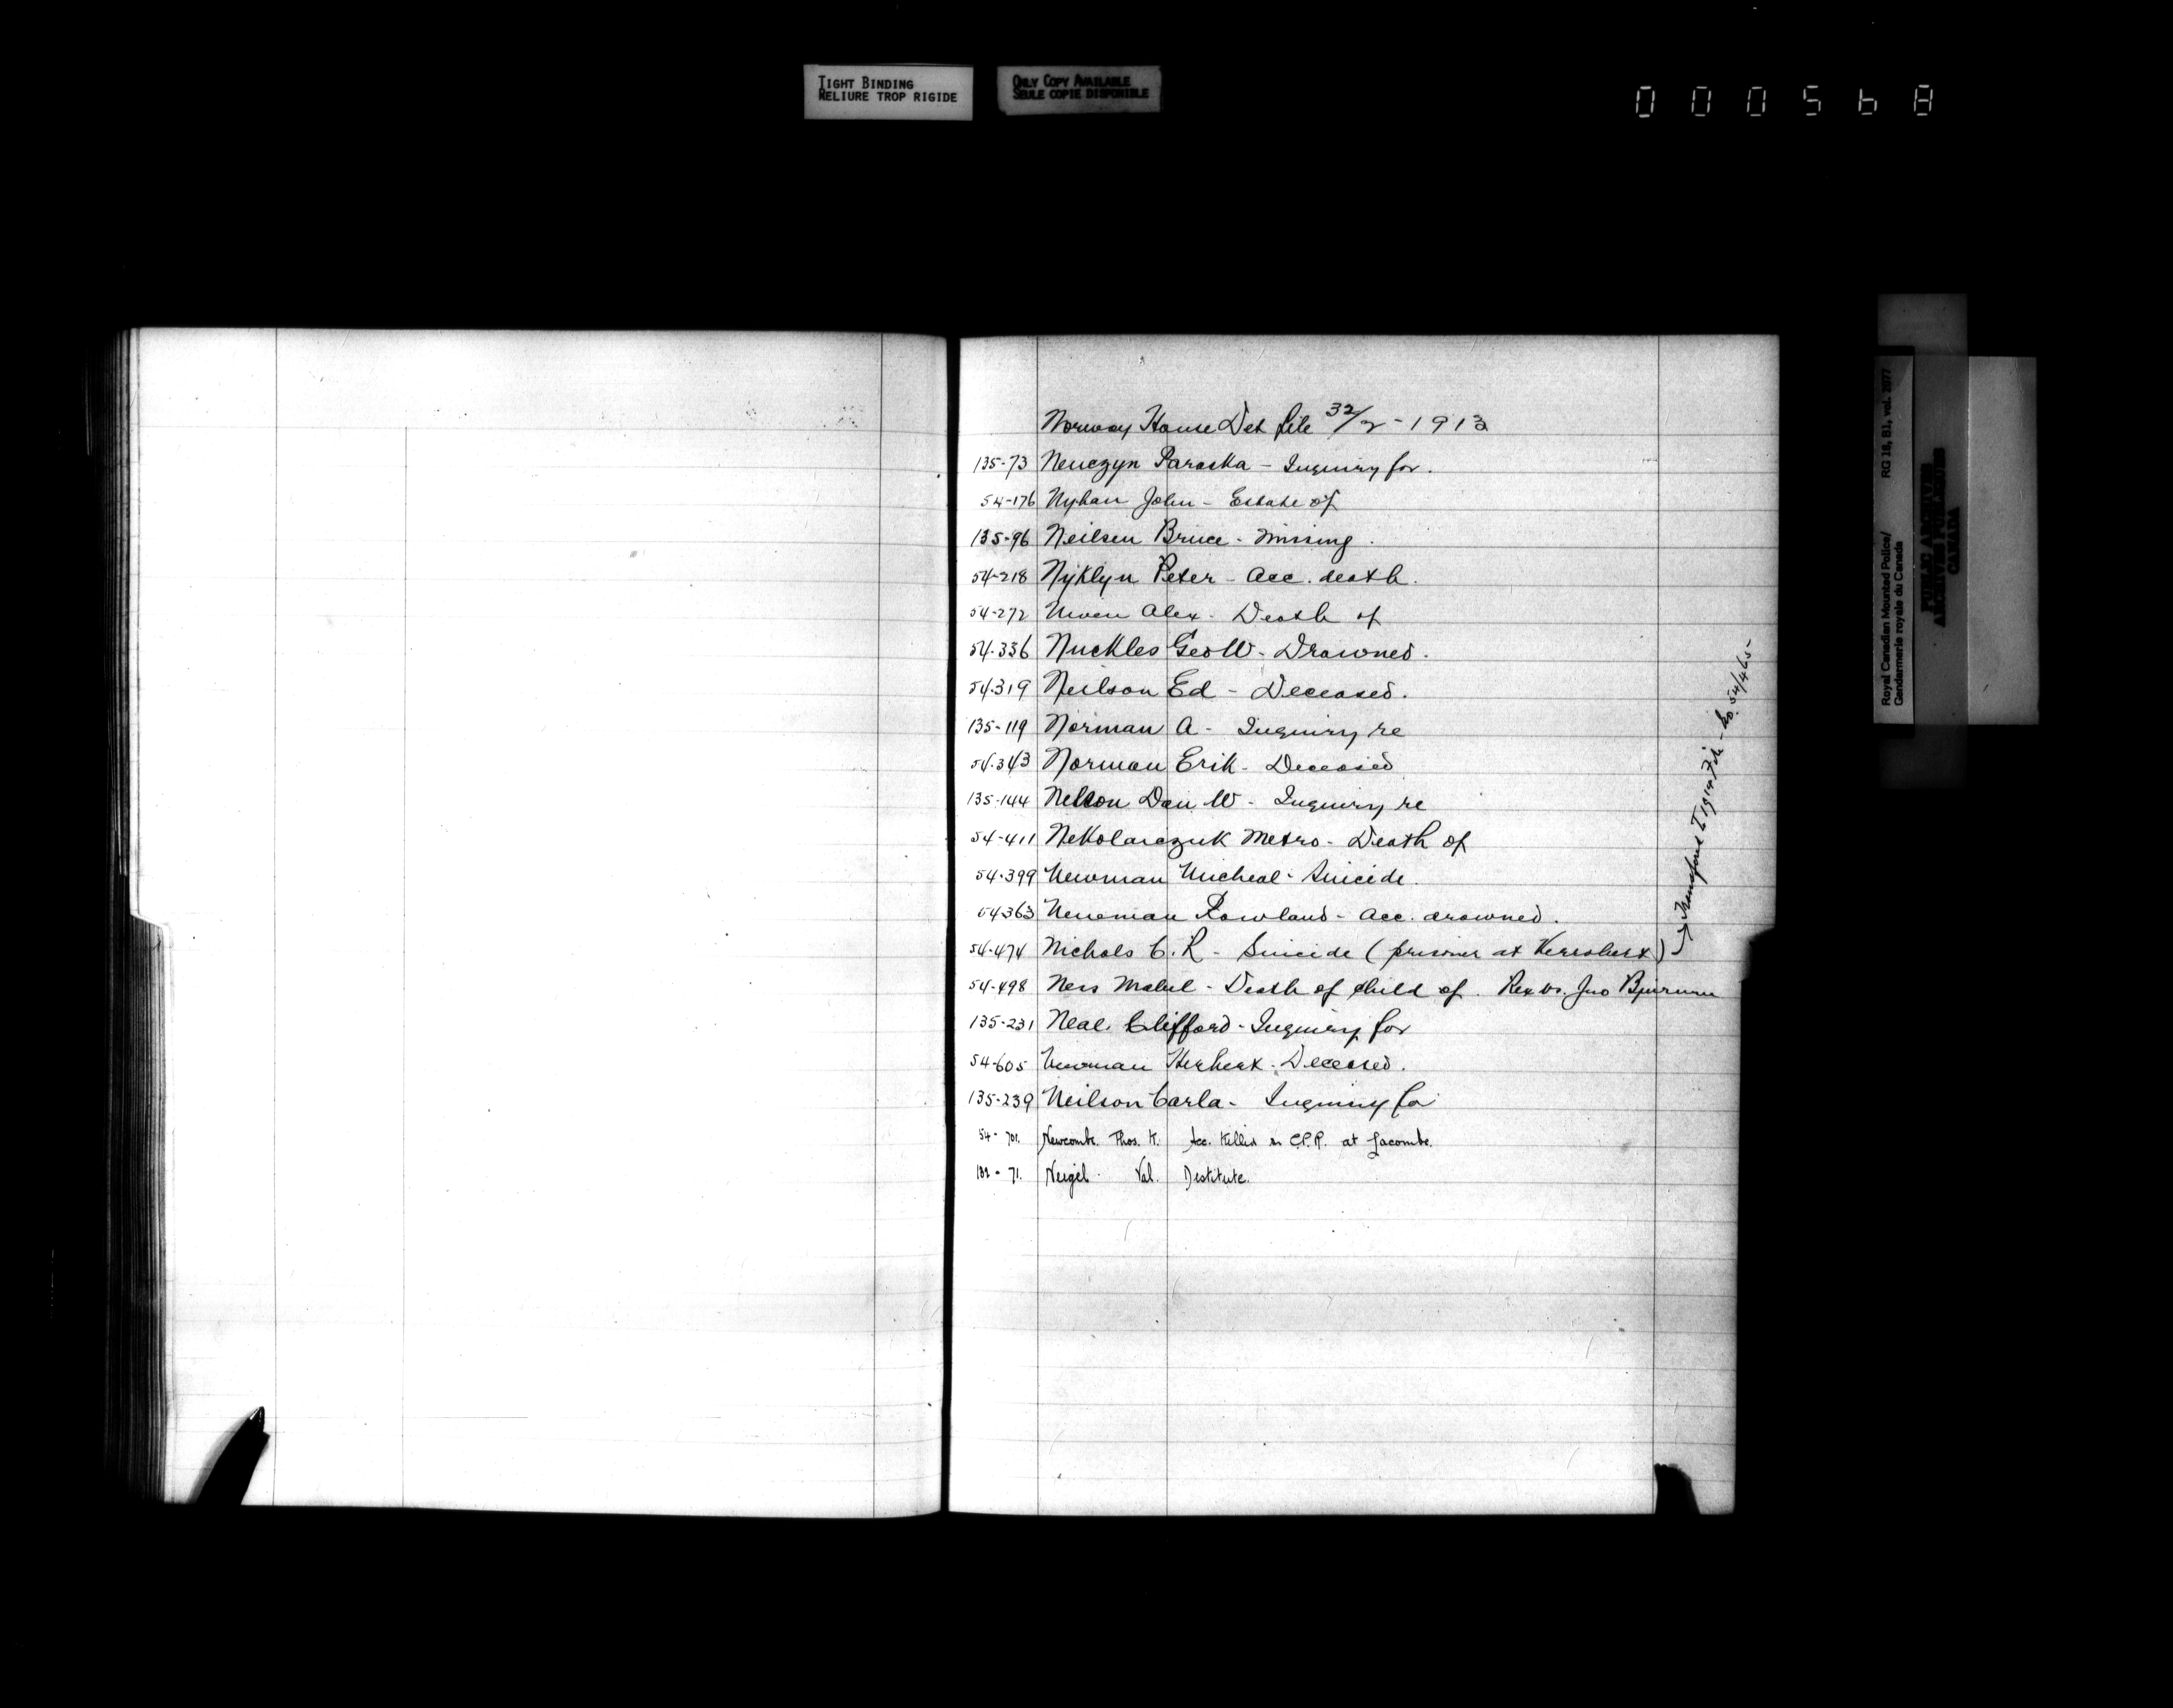 TIGHT BINDING
RELIURE TROP RIGIDE
ONLY COPY AVAILABLE
SEULE COPIE DISPONIBLE
000568
Norway House Det file 32/2-1913
135-73 Neuczyn Paraska - Inquiry for.
54-176 Nyhan John - Estate of
135-96 Neilsen Bruce - Missing.
54-218 Nyklyn Peter - Acc. death.
54-272 Niven Alex - Death of
54-336 Nuckles Geo W - Drowned.
54-319 Neilson Ed - Deceased.
135-119 Norman A - Inquiry re
54-343 Norman Erik - Deceased
135-144 Nelson Dan W - Inquiry re
54-411 Nekolaiczuk Metro - Death of
54-399 Newman Micheal - Suicide.
54363 Newman Rowland - Acc. drowned.
54-474 Nichols C. R - Suicide (prisoner at Kerrobert)
54-498 Ness Mabel - Death of child of. Rex vs. Jno
135-231 Neal Clifford - Inquiry for
54-605 Newman Herbert - Deceased.
135-239 Neilson Carla - Inquiry for
54-701. Newcombe. Thos. K. Acc. Killed on C.P.R. at Lacombe.
132-71. Neigel. Val. Destitute.
Transferred to 1914 File - No. 54/465-
Royal Canadian Mounted Police/ RG 18, B1, vol. 2077
Gendarmerie royale du Canada
PUBLIC ARCHIVES
ARCHIVES PUBLIQUES
CANADA